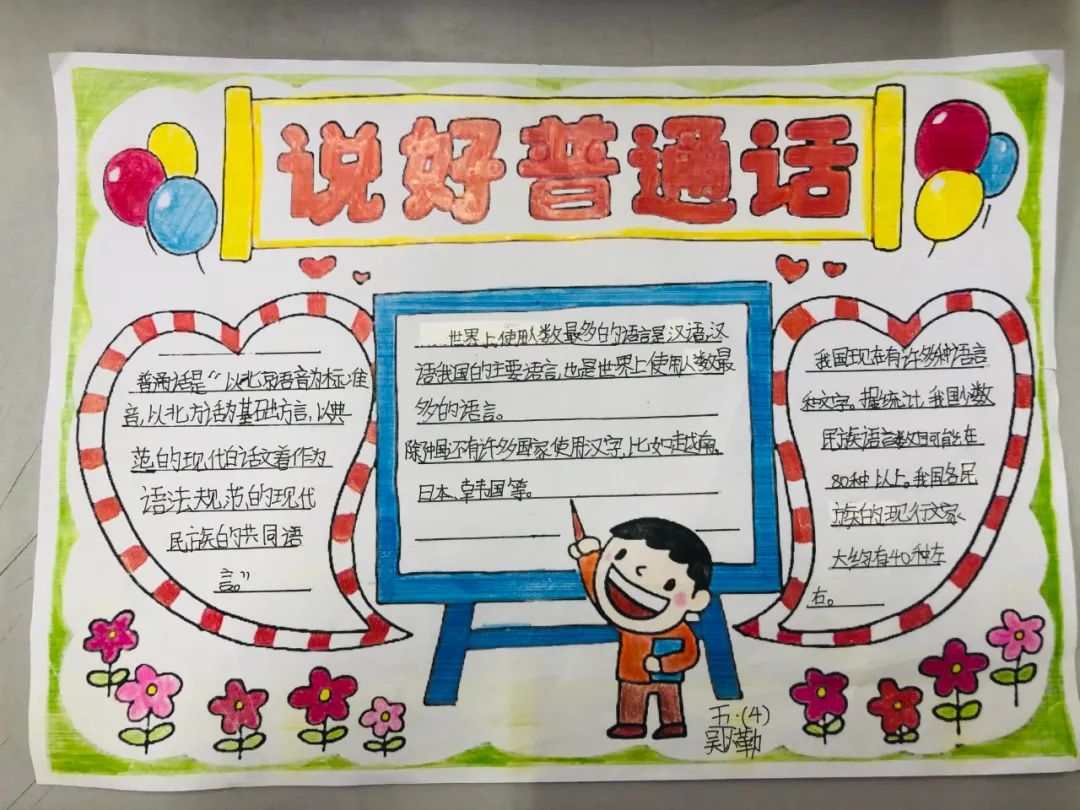 说好普通话
普通话是“以北京语音为标准
音,以北方话为基础方言,以典
范的现代白话文著作为
语法规范的现代
民族的共同语
言。”
世界上使用人数最多的语言是汉语,汉
语我国的主要语言,也是世界上使用人数最
多的语言。
除中国还有许多国家使用汉字,比如越南、
日本、韩国等。
我国现在有许多种语言
和文字。据统计,我国少数
民族语言数目可能在
80种以上。我国各民
族的现行文字
大约有40种左
右。
五·(4)